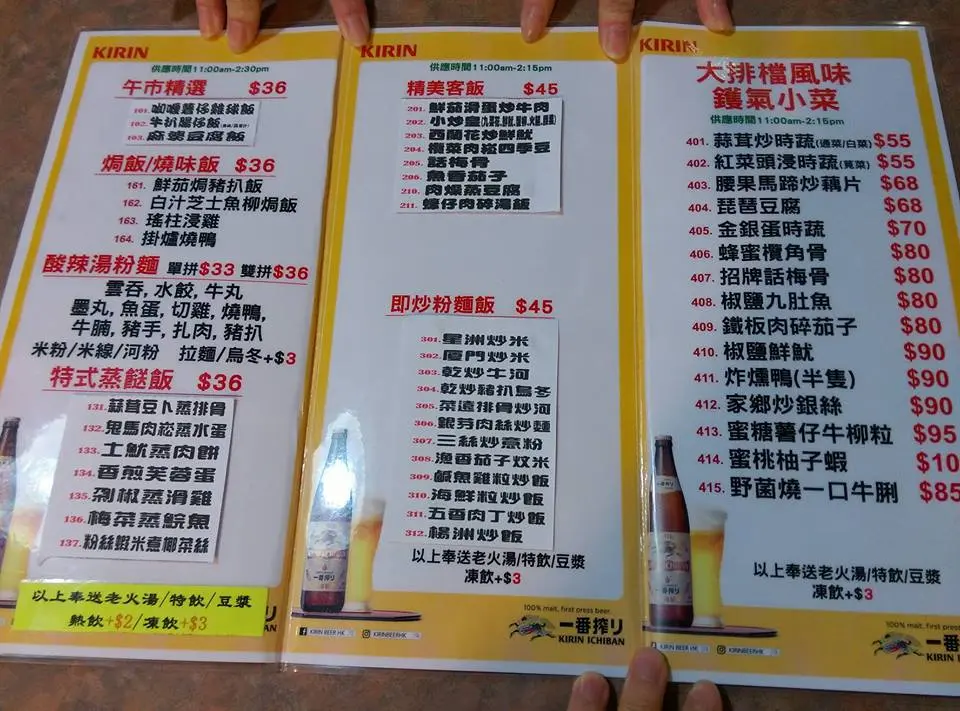 KIRIN
供應時間11:00am-2:30pm
午市精選 $36
101. 咖喱薯仔雞球飯
102. 牛扒腸仔飯
103. 麻婆豆腐飯
焗飯/燒味飯 $36
161. 鮮茄焗豬扒飯
162. 白汁芝士魚柳焗飯
163. 瑤柱浸雞
164. 掛爐燒鴨
酸辣湯粉麵 單拼$33 雙拼$36
雲吞, 水餃, 牛丸
墨丸, 魚蛋, 切雞, 燒鴨,
牛腩, 豬手, 扎肉, 豬扒
米粉/米線/河粉 拉麵/烏冬+$3
特式蒸餸飯 $36
131. 蒜茸豆卜蒸排骨
132. 鬼馬肉崧蒸水蛋
133. 土魷蒸肉餅
134. 香煎芙蓉蛋
135. 剁椒蒸滑雞
136. 梅菜蒸鯇魚
137. 粉絲蝦米煮椰菜絲
以上奉送老火湯/特飲/豆漿
熱飲+$2/凍飲+$3
KIRIN
供應時間11:00am-2:15pm
精美客飯 $45
201. 鮮茄滑蛋炒牛肉
202. 小炒皇
203. 西蘭花炒鮮魷
204. 欖菜肉崧四季豆
205. 話梅骨
206. 魚香茄子
210. 肉燥蒸豆腐
211. 蠔仔肉碎湯飯
即炒粉麵飯 $45
301. 星洲炒米
302. 廈門炒米
303. 乾炒牛河
304. 乾炒豬扒烏冬
305. 菜遠排骨炒河
306. 銀芽肉絲炒麵
307. 三絲炒意粉
308. 漁香茄子炆米
309. 鹹魚雞粒炒飯
310. 海鮮粒炒飯
311. 五香肉丁炒飯
312. 楊洲炒飯
以上奉送老火湯/特飲/豆漿
凍飲+$3
100% malt, first press beer.
一番搾り
KIRIN ICHIBAN
KIRIN BEER HK KIRINBEERHK
KIRIN
大排檔風味
鑊氣小菜
供應時間11:00am-2:15pm
401. 蒜茸炒時蔬(通菜/白菜) $55
402. 紅菜頭浸時蔬(莧菜) $55
403. 腰果馬蹄炒藕片 $68
404. 琵琶豆腐 $68
405. 金銀蛋時蔬 $70
406. 蜂蜜欖角骨 $80
407. 招牌話梅骨 $80
408. 椒鹽九肚魚 $80
409. 鐵板肉碎茄子 $80
410. 椒鹽鮮魷 $90
411. 炸燻鴨(半隻) $90
412. 家鄉炒銀絲 $90
413. 蜜糖薯仔牛柳粒 $95
414. 蜜桃柚子蝦 $10
415. 野菌燒一口牛脷 $85
以上奉送老火湯/特飲/豆漿
凍飲+$3
100% malt, first press
一番
KIRIN
KIRIN BEER HK KIRINBEERHK
一番搾り